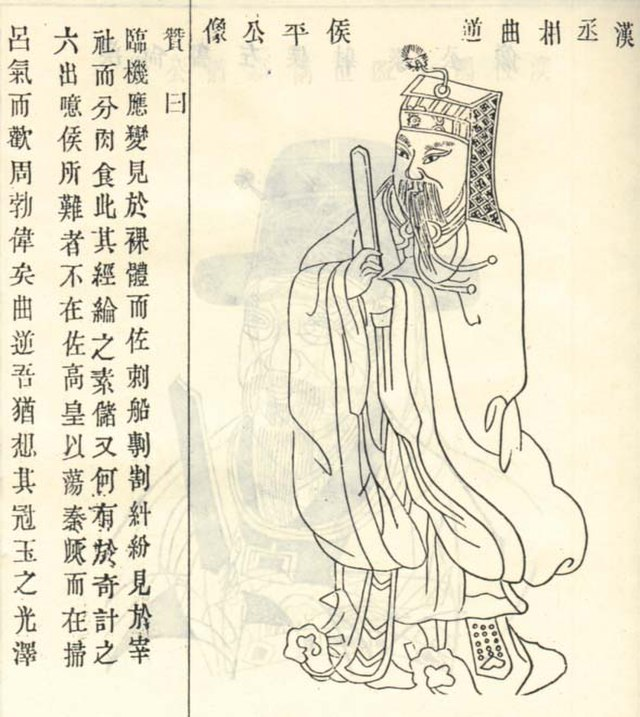 漢丞相曲逆侯平公像
贊曰
臨機應變見於裸體而佐刺船剸割糾紛見於宰
社而分肉食此其經綸之素儲又何有於奇計之
六出噫侯所難者不在佐高皇以蕩秦而在掃
呂氣而歡周勃偉矣曲逆吾猶想其冠玉之光澤